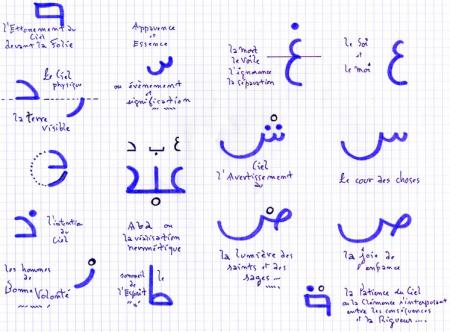 l'Etonnement du
Ciel
devant la Folie
Apparence
et
Essence
س
ou évènement
et
signification
la mort
le voile
l'ignorance
la séparation
غ
le Soi
et
le moi
ع
le Ciel
physique
د
ر
la terre
visible
ع ب د
ش
Ciel
l'Avertissement
du
س
le cour des choses
ذ
l'intention
du
Ciel
Abd ou
la réalisation
hermétique
ض
la lumière des
saints et des
sages
ص
la joie de
enfance
les hommes
de
Bonne
Volonté
ز
sommeil
de
l'Esprit
le
ط
la Patience du Ciel
ou la Clémence s'interposant
entre les conséquences
et la Rigueur